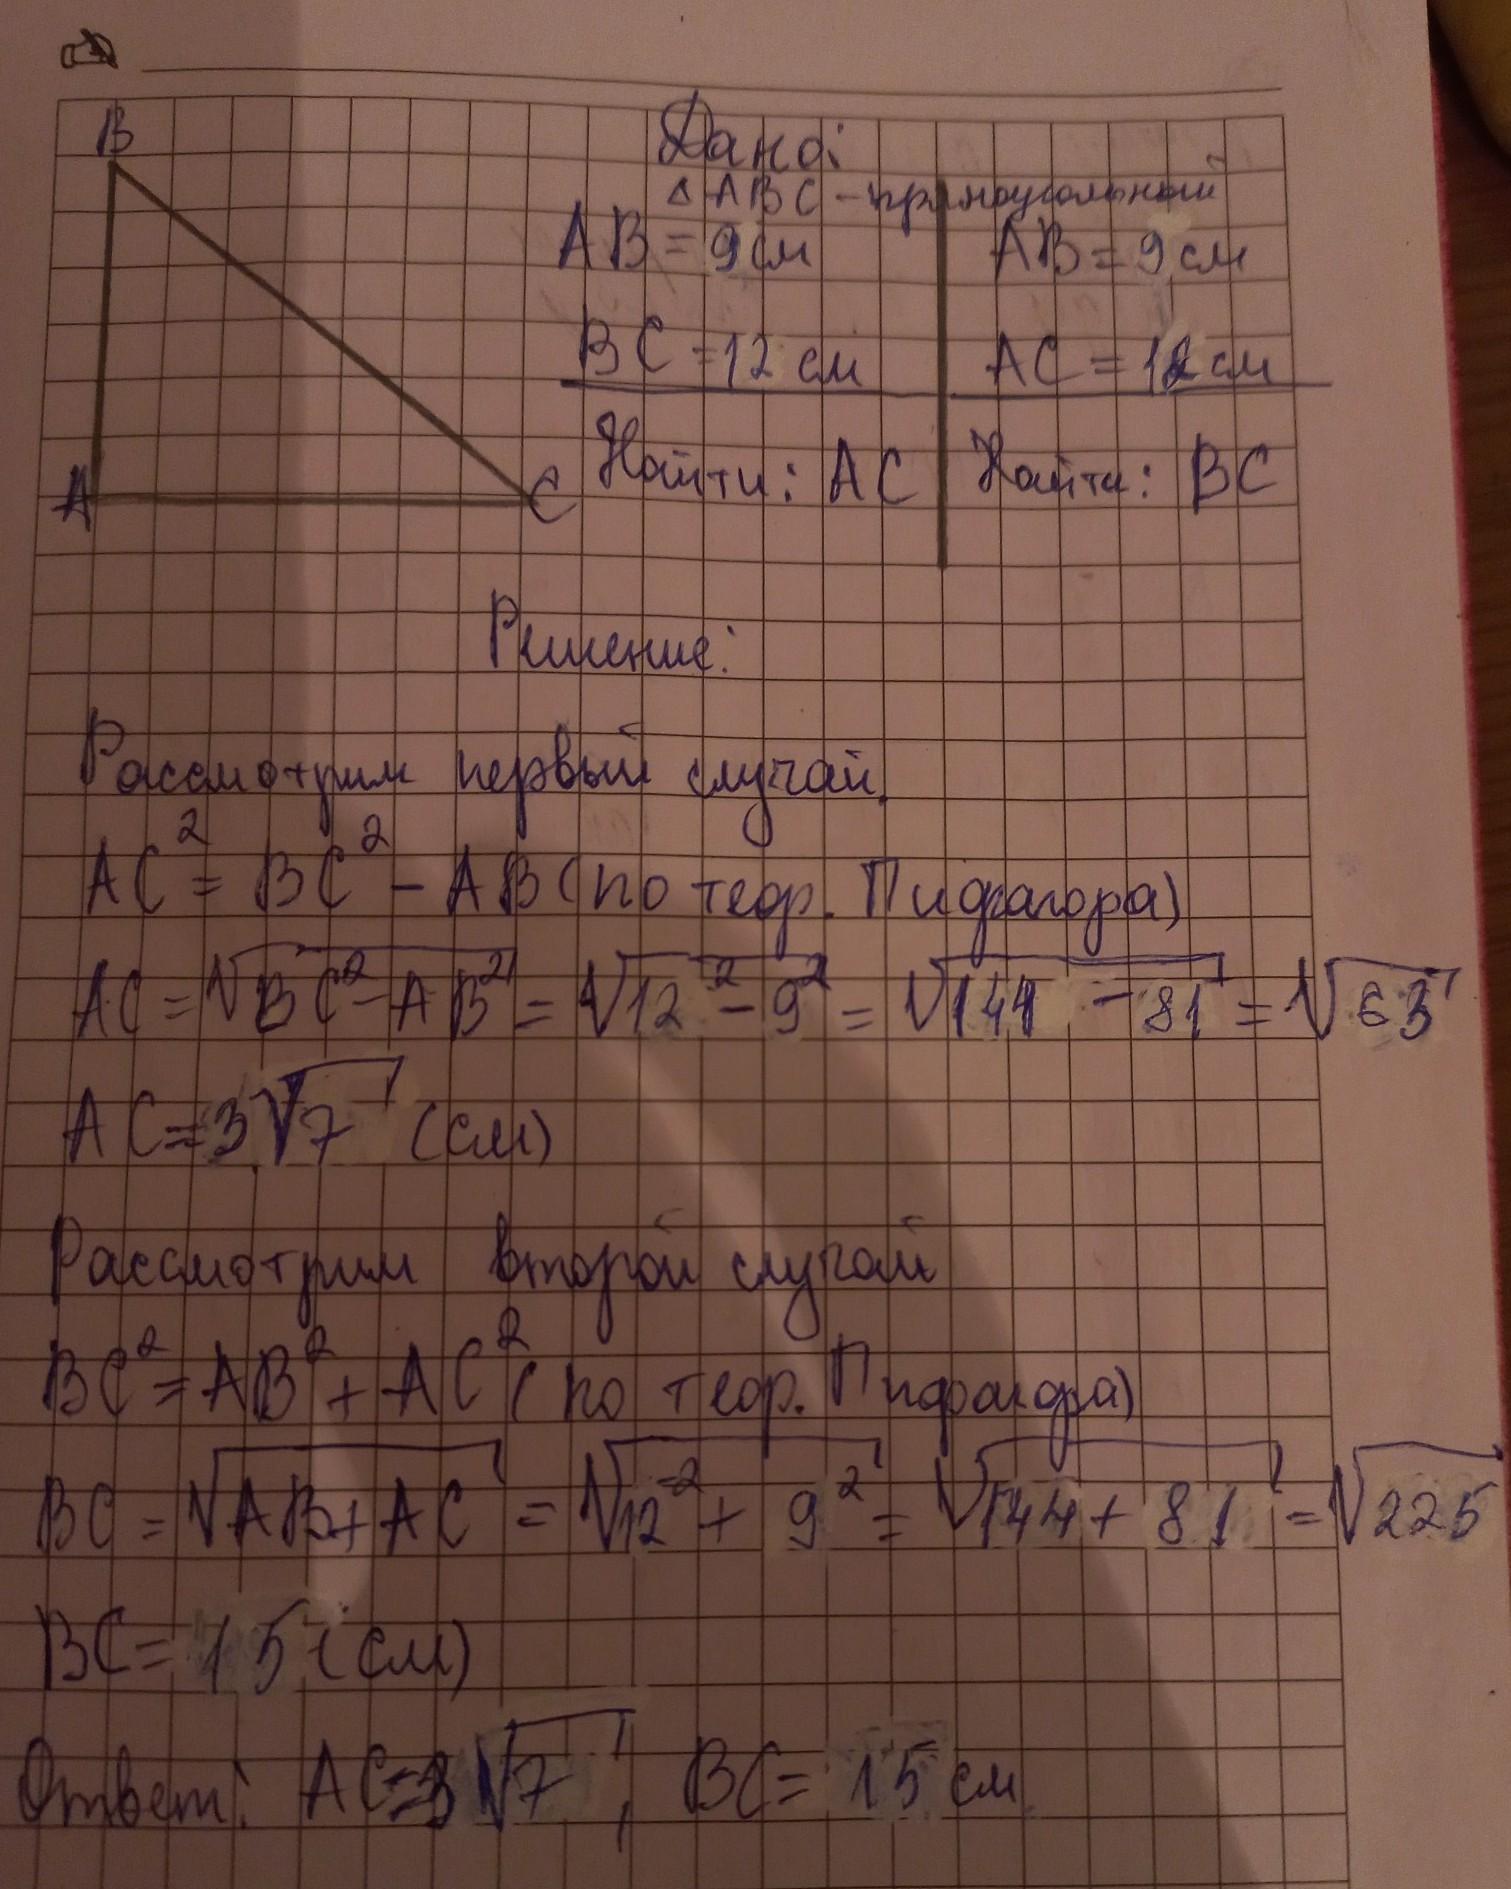 B
Дано:
△ ABC - прямоугольный
AB = 9 см
AB = 9 см
BC = 12 см
AC = 12 см
A
C
Найти: AC
Найти: BC
Решение:
Рассмотрим первый случай.
AC² = BC² - AB (по теор. Пифагора)
AC = √BC² - AB² = √12² - 9² = √144 - 81 = √63
AC = 3√7 (см)
Рассмотрим второй случай
BC² = AB² + AC² (по теор. Пифагора)
BC = √AB + AC = √12² + 9² = √144 + 81 = √225
BC = 15 (см)
Ответ: AC = 3√7 ; BC = 15 см